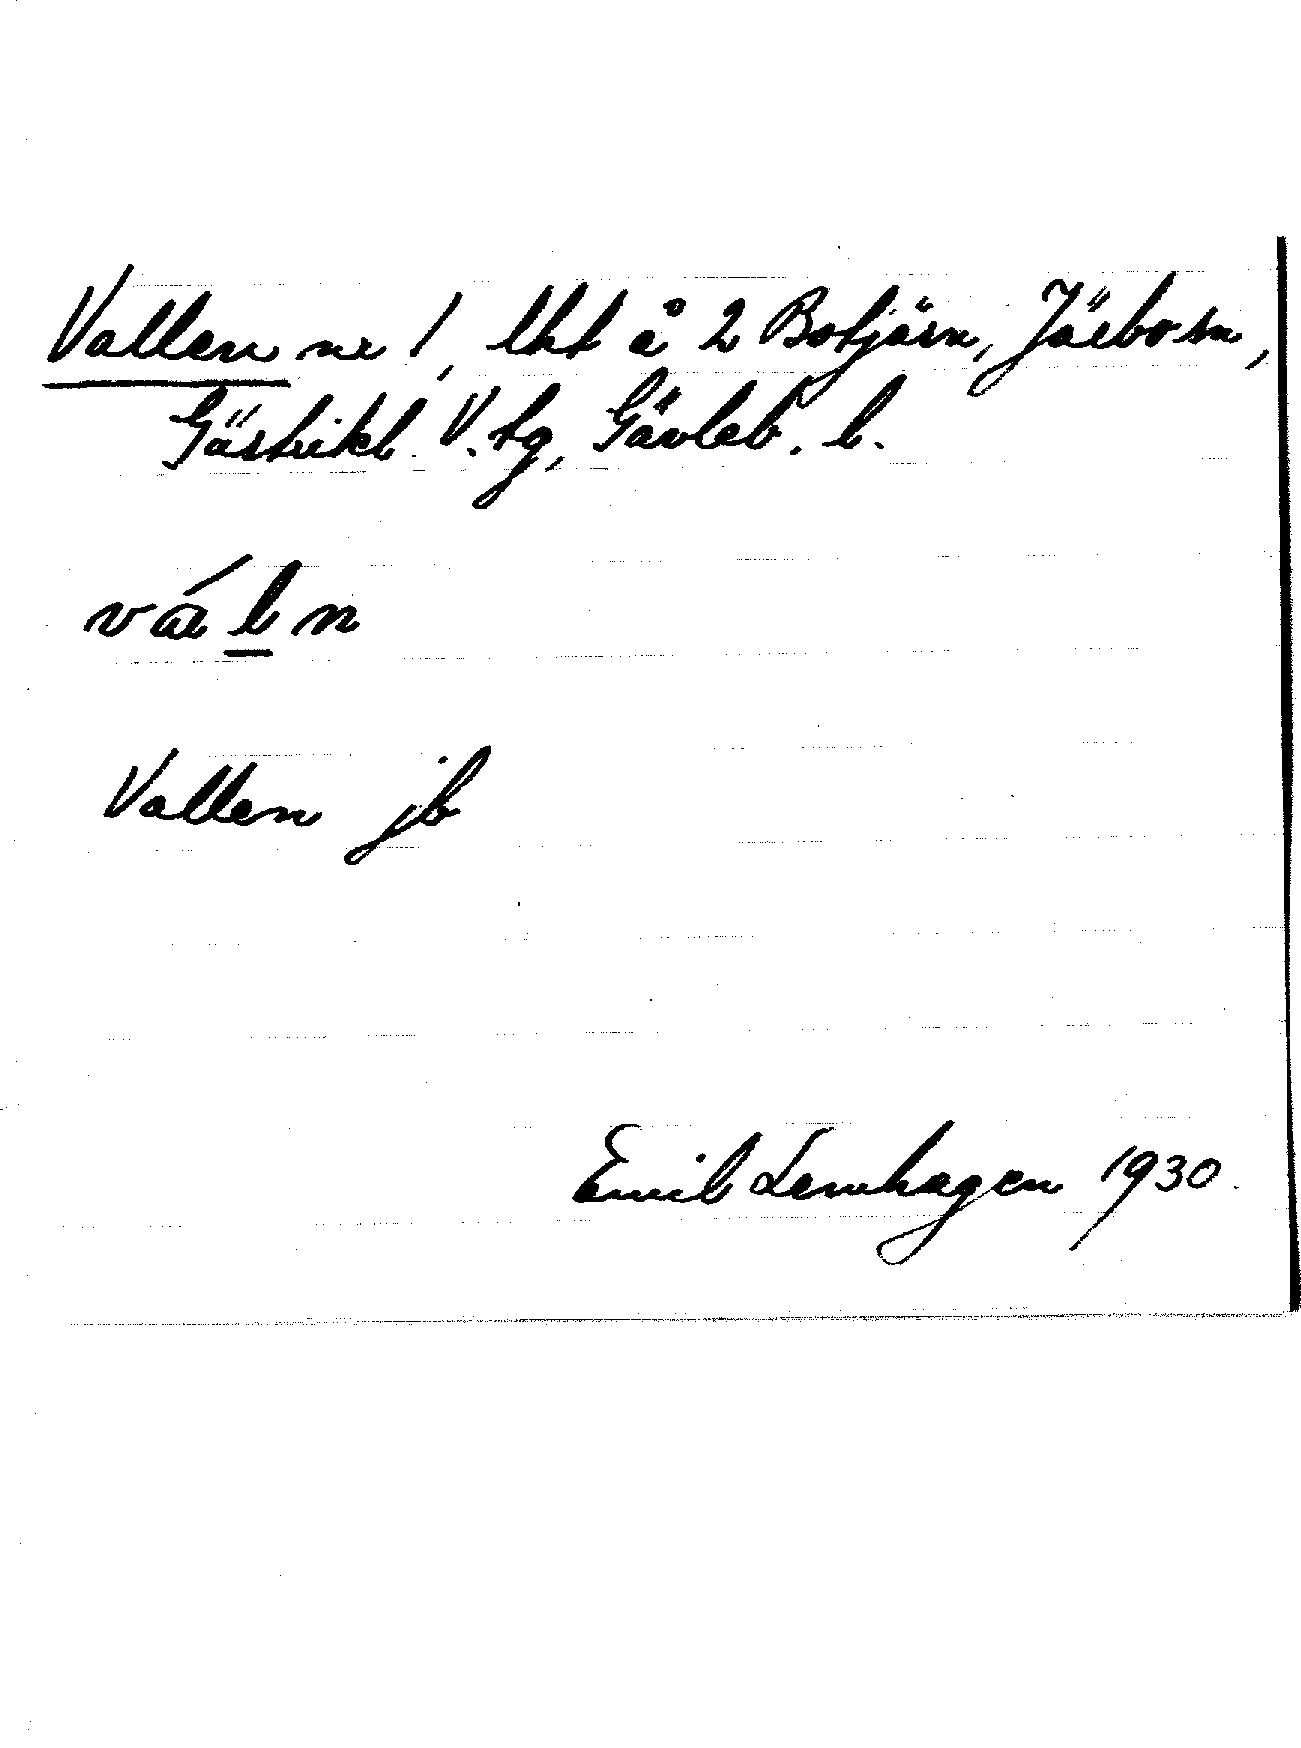 Vallen nr 1, lht å 2 Botjärn, Järbo sn,
Gästrikl. V. tg, Gävleb. l.
váln
Vallen jb
Emil Lenhagen 1930.